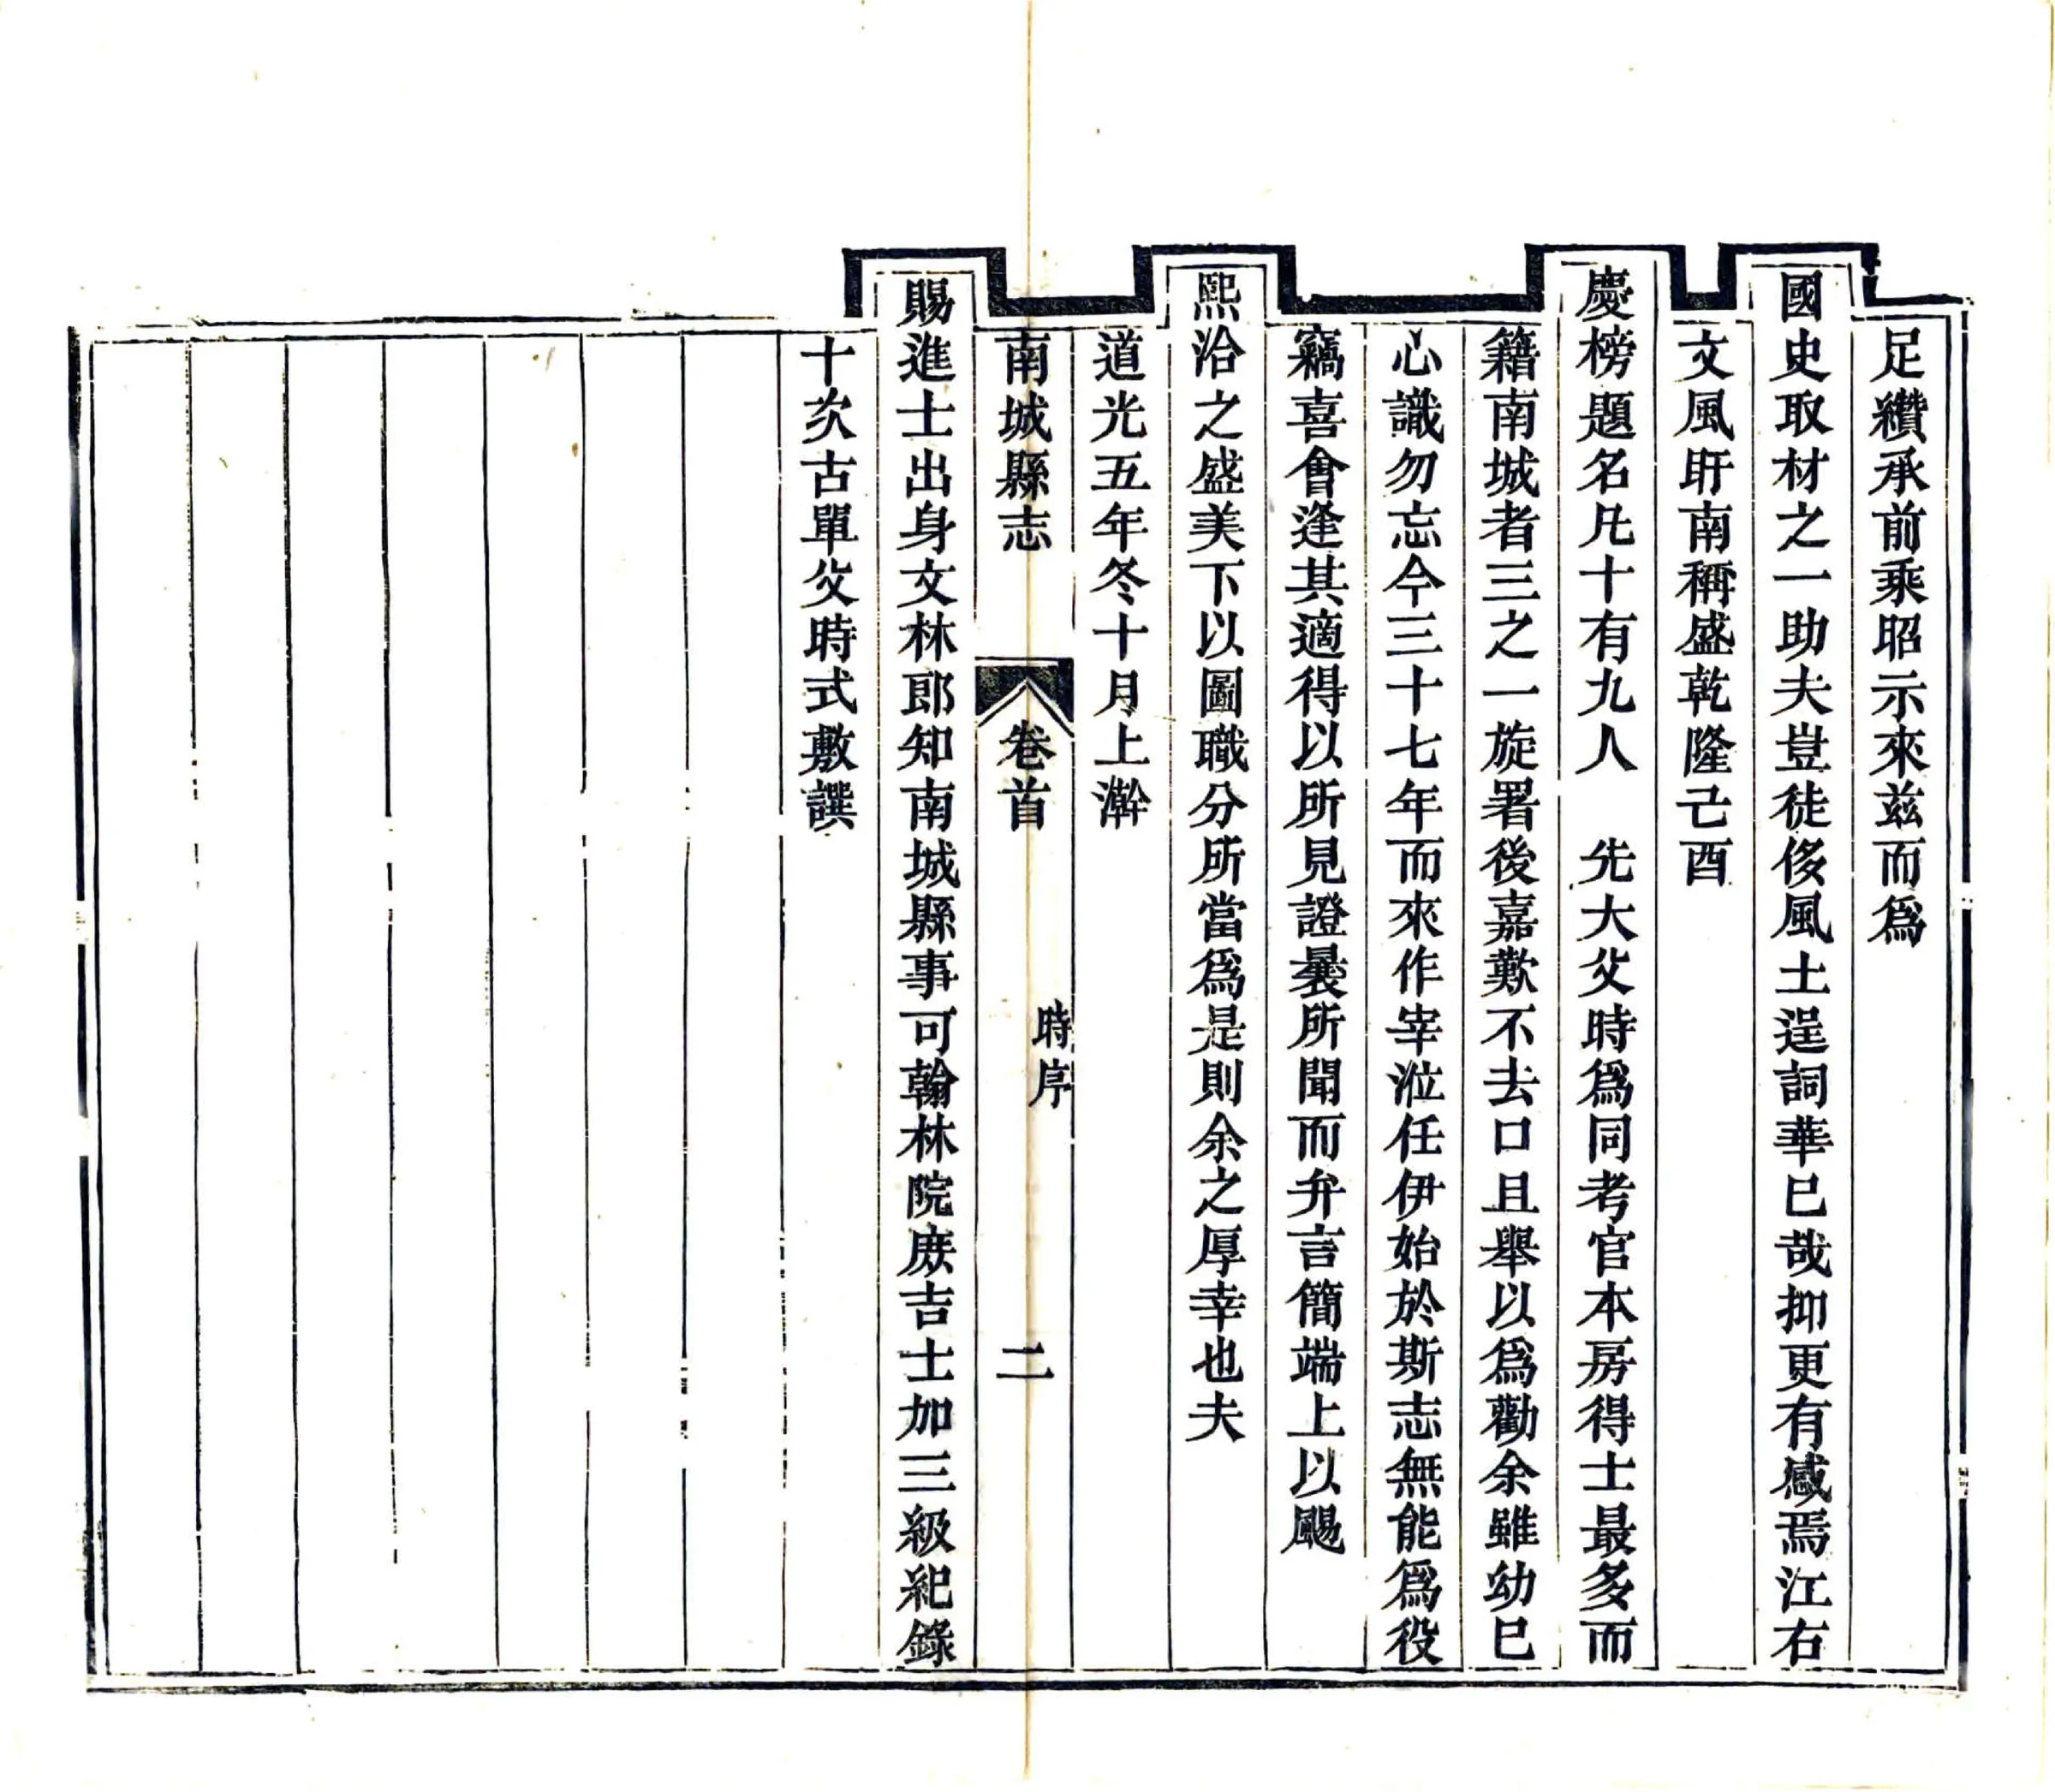 足纘承前乘昭示來茲而爲
國史取材之一助夫豈徒侈風土逞詞華巳哉抑更有感焉江右
文風盱南稱盛乾隆己酉
慶榜題名凡十有九人　先大父時爲同考官本房得士最多而
籍南城者三之一旋署後嘉歎不去口且舉以爲勸余雖幼巳
心識勿忘今三十七年而來作宰涖任伊始於斯志無能爲役
竊喜會逢其適得以所見證曩所聞而弁言簡端上以颺
熙洽之盛美下以圖職分所當爲是則余之厚幸也夫
道光五年冬十月上澣
南城縣志　卷首　時序　二
賜進士出身文林郎知南城縣事可翰林院庶吉士加三級紀錄
十次古單父時式敷譔